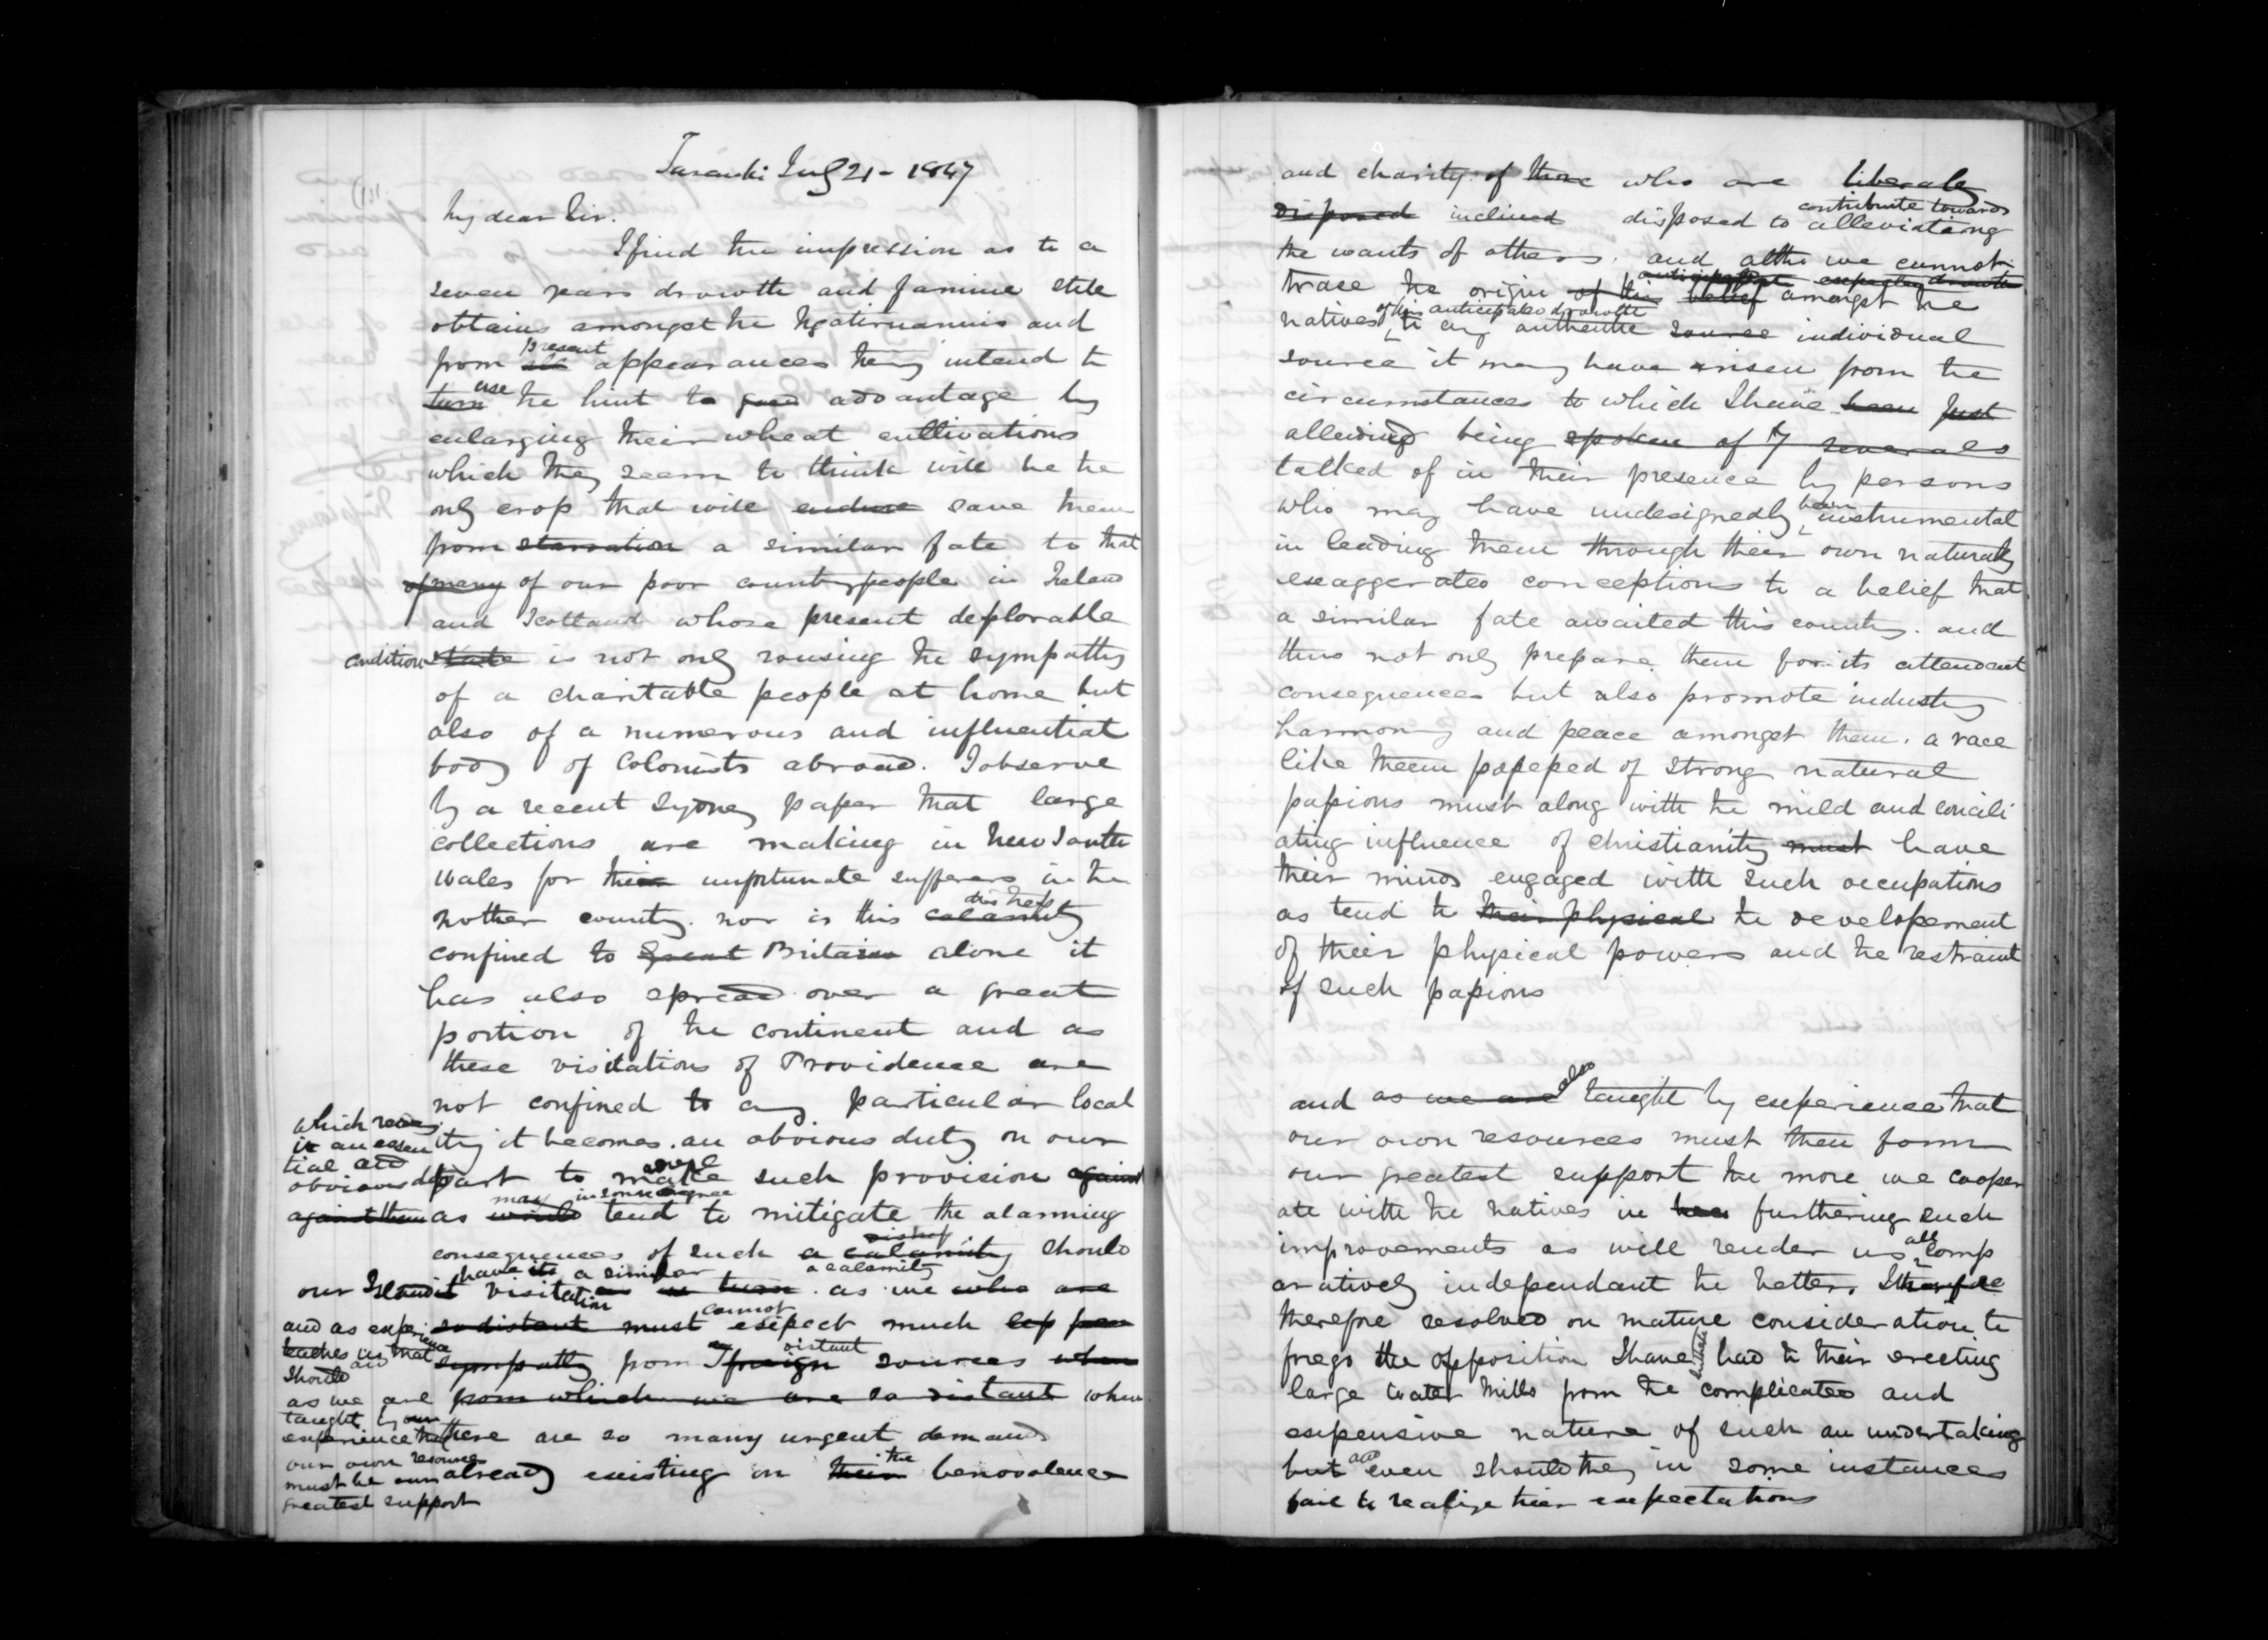 Taranaki July 21 - 1847
My dear Sir.
I find the impression as to a
seven years drowth and famine still
obtains amongst the Ngatiruanuis and
present
from appearances they intend to
use
turn the hint to good advantage by
enlarging their wheat cultivations
which they seem to think will be the
only crop that will endure save them
from starvation a similar fate to that
of many of our poor countrypeople in Ireland
and Scotland whose present deplorable
condition state is not only rousing the sympathy
of a charitable people at home but
also of a numerous and influential
body of Colonists abroad. I observe
by a recent Sydney paper that large
collections are making in New South
Wales for their unfortunate sufferers in the
distress
mother country. nor is this calamity
confined to Great Britain alone it
has also spread over a great
portion of the continent and as
these visitations of Providence are
not confined to any particular local
ity it becomes an obvious duty on our
which
is an essen
tial and
obvious
part to make such provision against
may in some degree
against them as would tend to mitigate the alarming
consequences of such a calamity should
have its a similar a calamity
our Island visitation as in turn as we who are
cannot
and as experience so distant must expect much less from
teaches us that
distant
sympathy from foreign sources when
should
as we are from which we are so distant when
taught by our
experience that there are so many urgent demands
our own resources
the
must be our already existing on their benovolence
greatest support
and charity of those who are liberaly
contribute towards
disposed inclined disposed to alleviateing
the wants of others. and altho we cannot
anticipated expected drowth
trace the origin of this belief amongst the
of this anticipated drowth
natives to any authentic source individual
source it may have arisen from the
circumstances to which I have been just
alleuded being spoken of by severals
talked of in their presence by persons
been
who may have undesignedly instrumental
in leading them through their own naturaly
exaggerated conceptions to a belief that
a similar fate awaited this country. and
thus not only prepare them for its attendant
consequences but also promote industry
harmony and peace amongst them. a race
like theem possessed of strong natural
passions must along with the mild and concili
ating influence of christianity must have
their minds engaged with such occupations
as tend to their physical the developement
of their physical powers and the restraint
of such passions
also
and as we are taught by experience that
our own resources must then form
our greatest support the more we cooper
ate with the natives in furthering such
all
improvements as will render us comp
aratively independant the better. I therefore
therefore resolved on mature consideration to
forego the opposition I have hitherto had to their erecting
large water Mills from the complicated and
expensive nature of such an undertaking
and
but even should they in some instances
fail to realize their expectations